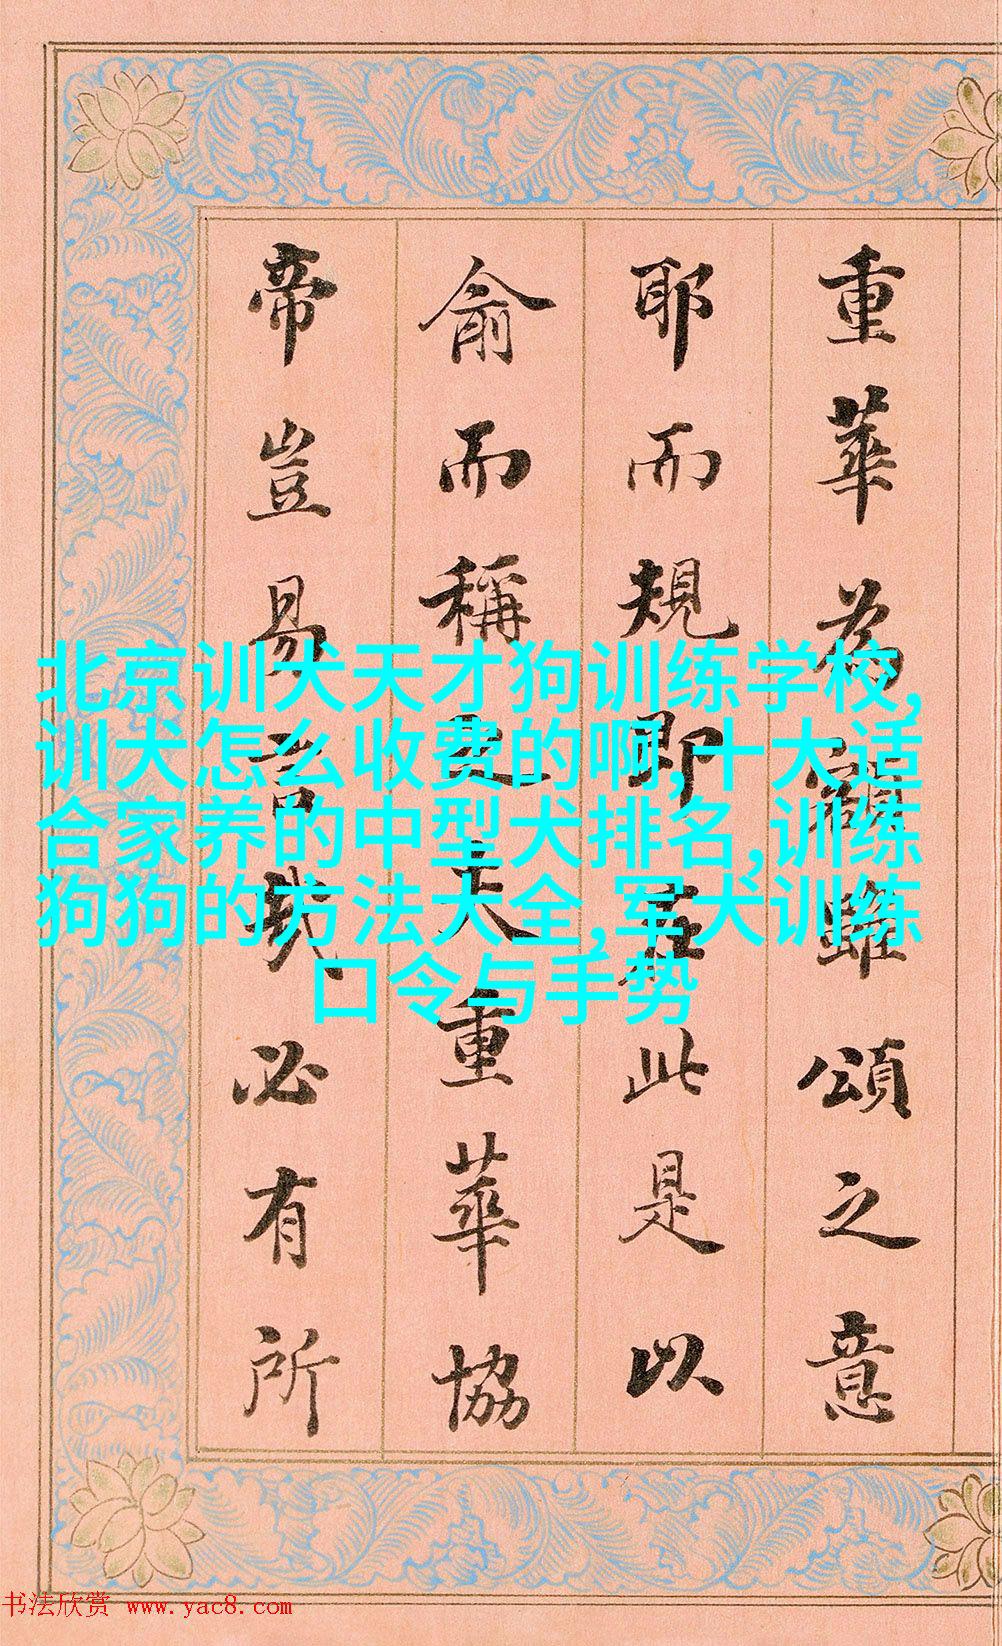 重華為

頌之意
耶而規即
此是以
俞而稱
重華協
帝豈易言哉必有所
北京训犬天才狗训练学校,
训犬怎么收费的啊,十大适
合家养的中型犬排名,训练
狗狗的方法大全,军犬训练
口令与手势
书法欣赏 www.yac8.com